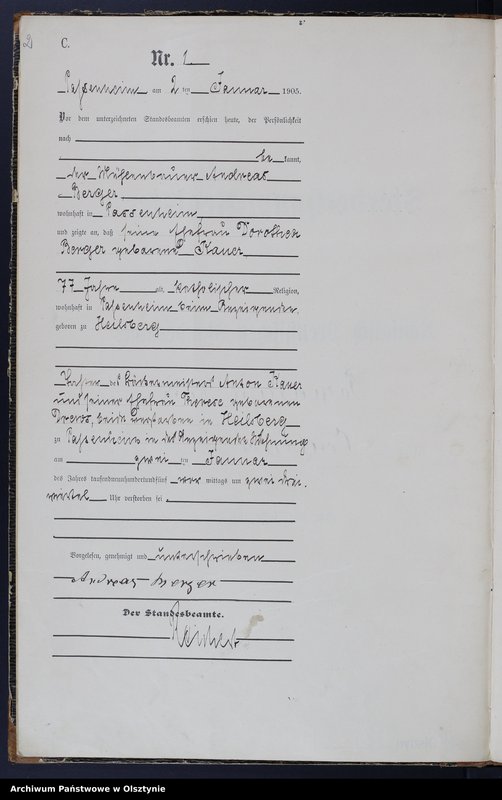 2
C.
Nr. 1
Passenheim am 2 ten Januar 1905.
Vor dem unterzeichneten Standesbeamten erschien heute, der Persönlichkeit
nach
be kannt,
der Mühlenbauer Andreas
Berger
wohnhaft in Passenheim
und zeigte an, daß seine Ehefrau Dorothea
Berger geborene Kauer
77 Jahre alt, katholischer Religion,
wohnhaft in Passenheim beim Anzeigenden,
geboren zu Heilsberg
Tochter des Anton Kauer
und seiner Ehefrau Therese geborenen
beide verstorben in Heilsberg
zu Passenheim in des Anzeigenden Wohnung
am zwei ten Januar
des Jahres tausendneunhundertundfünf vor mittags um zwei drei
viertel Uhr verstorben sei.
Vorgelesen, genehmigt und unterschrieben
Andreas Berger
Der Standesbeamte.
Archiwum Państwowe w Olsztynie